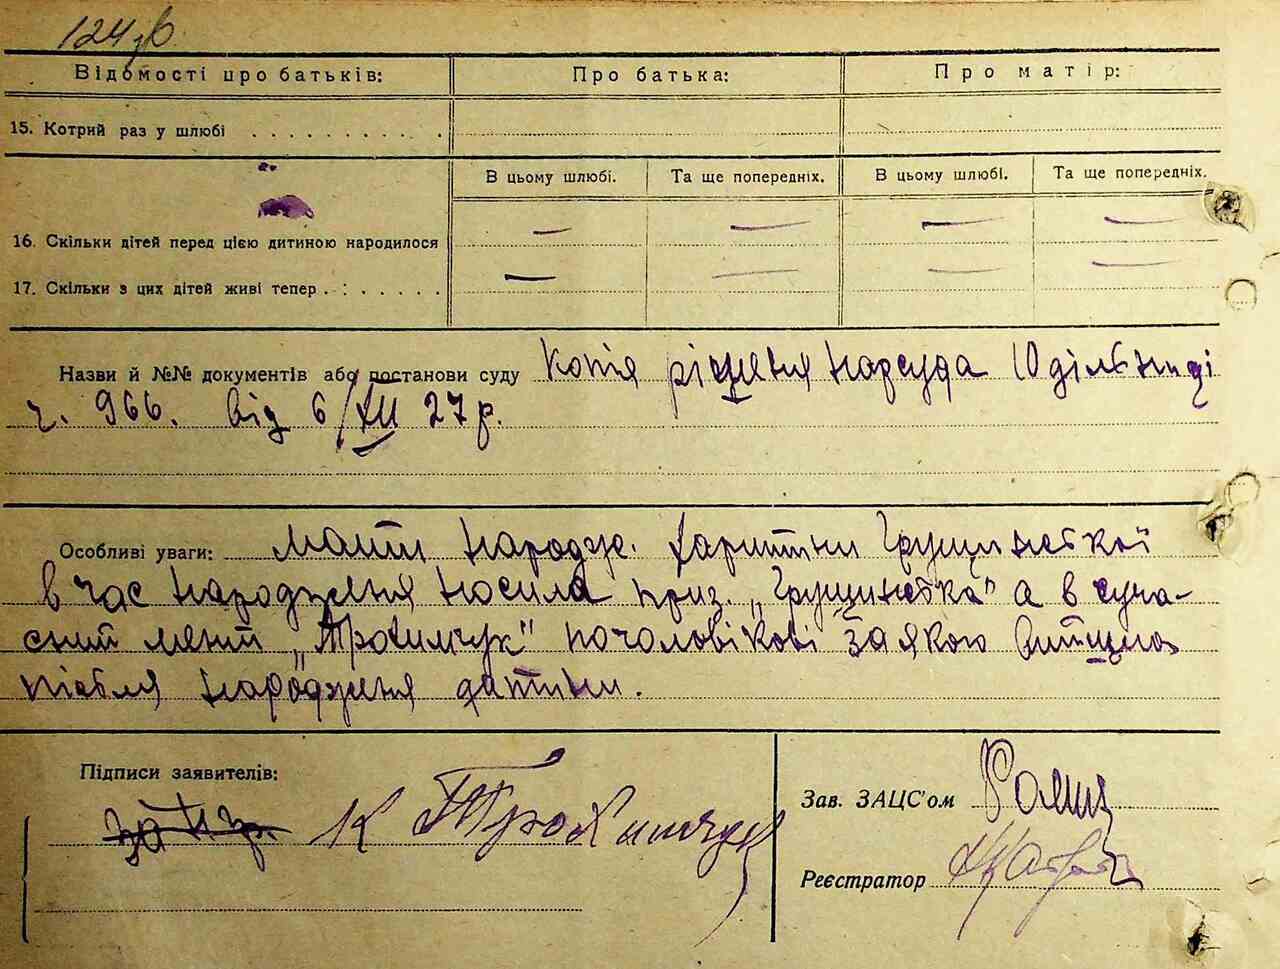 124 зв.
Відомості про батьків: Про батька: Про матір:
15. Котрий раз у шлюбі
В цьому шлюбі. Та ще попередніх. В цьому шлюбі. Та ще попередніх.
16. Скільки дітей перед цією дитиною народилося — — — —
17. Скільки з цих дітей живі тепер — — — —
Назви й №№ документів або постанови суду Копія рішення нарсуда 10 дільниці
ч. 966. від 6/XII 27 р.
Особливі уваги: Мати народже. Харитини Грушинської
в час народження носила призв. „Грушинська" а в суча-
сний мент „Трохимчук" по чоловікові за якого вийшла
після народження дитини.
Підписи заявителів:
К Трохимчук
Зав. ЗАЦС'ом
Реєстратор